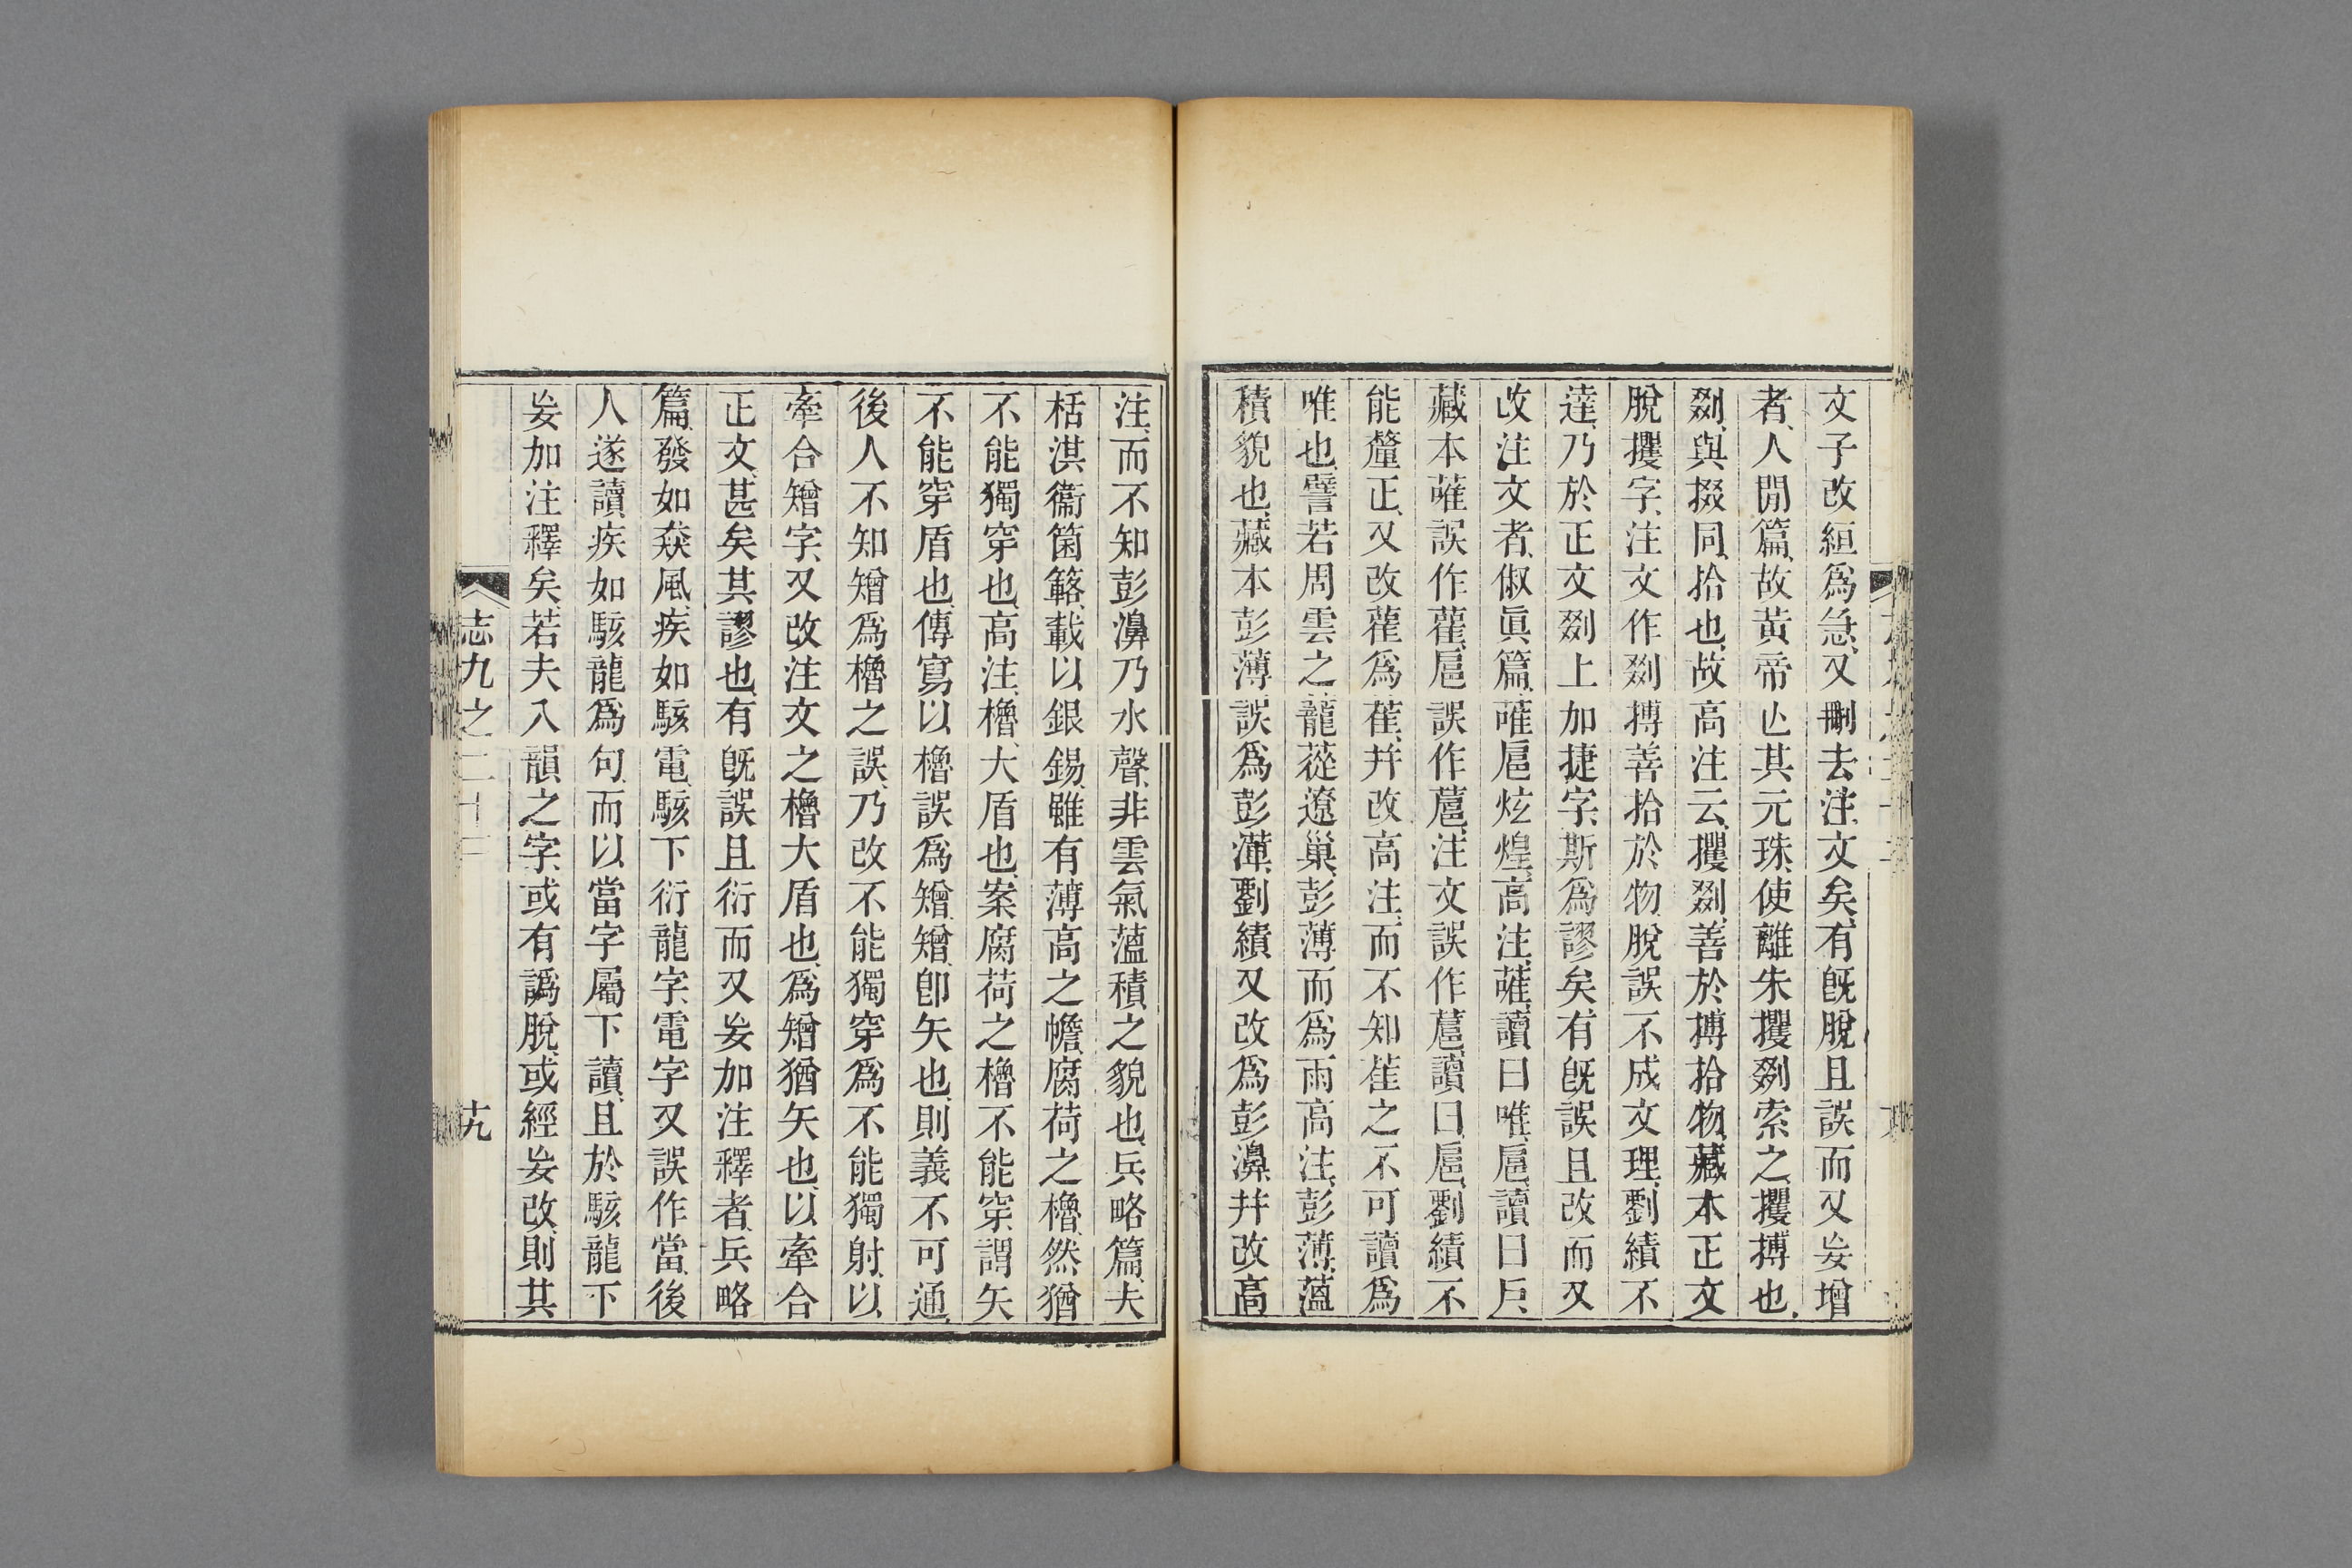 文子改絙爲急又刪去注文矣有旣脫且誤而又妄增
者人閒篇故黃帝亾其元珠使離朱攫剟索之攫搏也
剟與掇同拾也故高注云攫剟善於搏拾物藏本正文
脫攫字注文作剟搏善拾於物脫誤不成文理劉績不
達乃於正文剟上加捷字斯爲謬矣有旣誤且改而又
改注文者俶眞篇蓶扈炫煌高注蓶讀曰唯扈讀曰戶
藏本蓶誤作蘿扈誤作蔰注文誤作蔰讀曰扈劉績不
能釐正又改蘿爲萑幷改高注而不知萑之不可讀爲
唯也譬若周雲之蘢蓯遼巢彭薄而爲雨高注彭薄薀
積貌也藏本彭薄誤爲彭薄劉績又改爲彭濞幷改高
注而不知彭濞乃水聲非雲氣薀積之貌也兵略篇夫
栝淇衞箘簵載以銀錫雖有薄高之幨腐荷之櫓然猶
不能獨穿也高注櫓大盾也案腐荷之櫓不能穿謂矢
不能穿盾也傳寫以櫓誤爲矰矰卽矢也則義不可通
後人不知矰爲櫓之誤乃改不能獨穿爲不能獨射以
牽合矰字又改注文之櫓大盾也爲矰猶矢也以牽合
正文甚矣其謬也有旣誤且衍而又妄加注釋者兵略
篇發如猋風疾如駭電駭下衍龍字電字又誤作當後
人遂讀疾如駭龍爲句而以當字屬下讀且於駭龍下
妄加注釋矣若夫入韻之字或有譌脫或經妄改則其
志九之二十二
十九